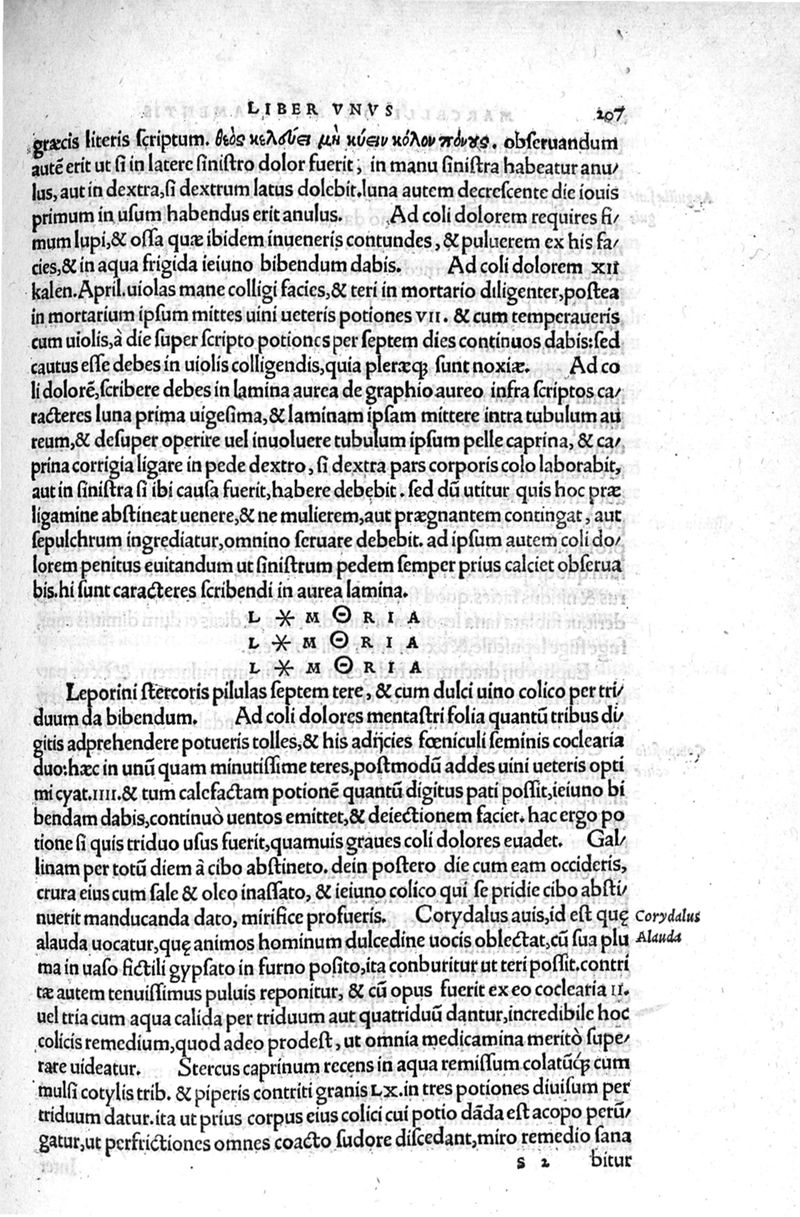 LIBER VNVS 207
græcis literis ſcriptum. θεὸς κελεύει μὴ κύειν κόλον πόνους. obſeruandum
autē erit ut ſi in latere ſiniſtro dolor fuerit, in manu ſiniſtra habeatur anu/
lus, aut in dextra, ſi dextrum latus dolebit. luna autem decreſcente die iouis
primum in uſum habendus erit anulus. Ad coli dolorem requires fi/
mum lupi, & oſſa quæ ibidem inueneris contundes, & puluerem ex his fa/
cies, & in aqua frigida ieiuno bibendum dabis. Ad coli dolorem XII
kalen. April. uiolas mane colligi facies, & teri in mortario diligenter, poſtea
in mortarium ipſum mittes uini ueteris potiones VII. & cum temperaueris
cum uiolis, à die ſuper ſcripto potiones per ſeptem dies continuos dabis: ſed
cautus eſſe debes in uiolis colligendis, quia pleræq; ſunt noxiæ. Ad co
li dolorē, ſcribere debes in lamina aurea de graphio aureo infra ſcriptos ca/
racteres luna prima uigeſima, & laminam ipſam mittere intra tubulum au
reum, & deſuper operire uel inuoluere tubulum ipſum pelle caprina, & ca/
prina corrigia ligare in pede dextro, ſi dextra pars corporis colo laborabit,
aut in ſiniſtra ſi ibi cauſa fuerit, habere debebit. ſed dū utitur quis hoc præ
ligamine abſtineat uenere, & ne mulierem, aut prægnantem contingat, aut
ſepulchrum ingrediatur, omnino ſeruare debebit. ad ipſum autem coli do/
lorem penitus euitandum ut ſiniſtrum pedem ſemper prius calciet obſerua
bis. hi ſunt caracteres ſcribendi in aurea lamina.
L ✳ M Θ R I A
L ✳ M Θ R I A
L ✳ M Θ R I A
Leporini ſtercoris pilulas ſeptem tere, & cum dulci uino colico per tri/
duum da bibendum. Ad coli dolores mentaſtri folia quantū tribus di/
gitis adprehendere potueris tolles, & his adijcies fœniculi ſeminis coclearia
duo: hæc in unū quam minutiſſime teres, poſtmodū addes uini ueteris opti
mi cyat. IIII. & tum calefactam potionē quantū digitus pati poſſit, ieiuno bi
bendam dabis, continuò uentos emittet, & deiectionem faciet. hac ergo po
tione ſi quis triduo uſus fuerit, quamuis graues coli dolores euadet. Gal/
linam per totū diem à cibo abſtineto. dein poſtero die cum eam occideris,
crura eius cum ſale & oleo inaſſato, & ieiuno colico qui ſe pridie cibo abſti/
nuerit manducanda dato, mirifice profueris. Corydalus auis, id eſt quę
Corydalus
alauda uocatur, quę animos hominum dulcedine uocis oblectat, cū ſua plu
Alauda
ma in uaſo fictili gypſato in furno poſito, ita conburitur ut teri poſſit. contri
tæ autem tenuiſſimus puluis reponitur, & cū opus fuerit ex eo coclearia II.
uel tria cum aqua calida per triduum aut quatriduū dantur, incredibile hoc
colicis remedium, quod adeo prodeſt, ut omnia medicamina meritò ſupe/
rare uideatur. Stercus caprinum recens in aqua remiſſum colatūq; cum
mulſi cotylis trib. & piperis contriti granis LX. in tres potiones diuiſum per
triduum datur. ita ut prius corpus eius colici cui potio dāda eſt acopo perū/
gatur, ut perfrictiones omnes coacto ſudore diſcedant, miro remedio ſana
s 2 bitur